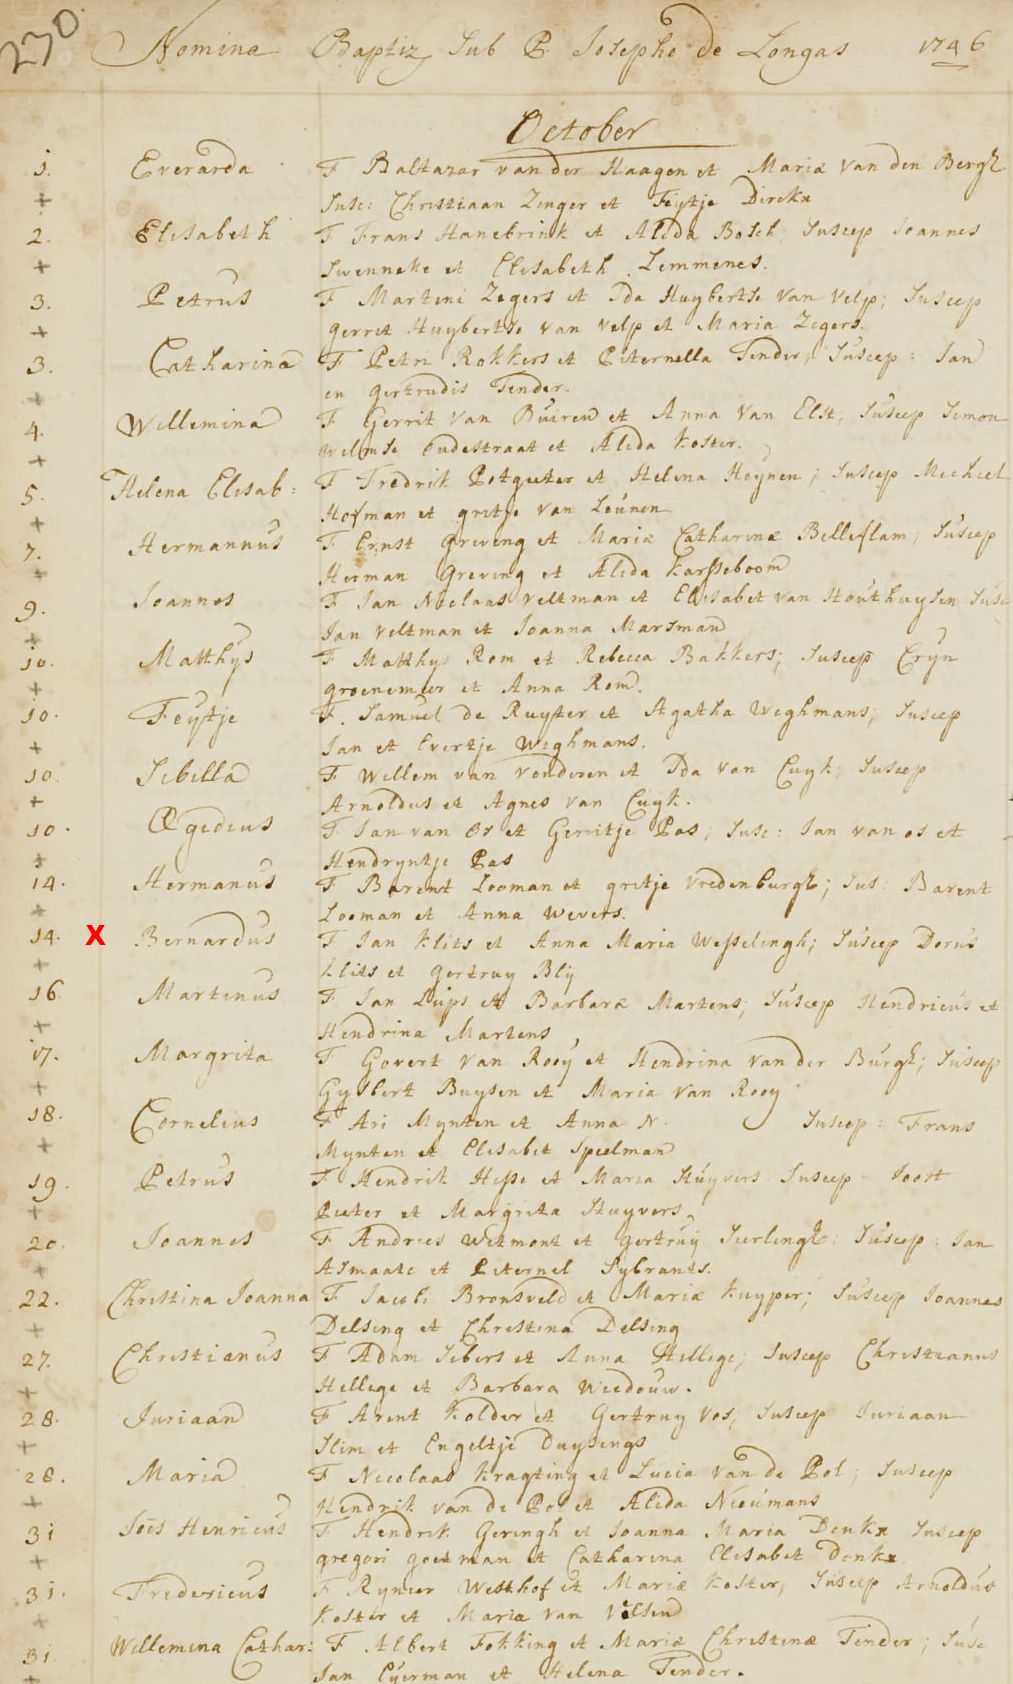 270 Nomina Baptiz Sub P. Josepho de Longas 1746
October
1. Everarda F Baltazar van der Haagen et Mariæ Van den Bergh
+ Susc: Christiaan Zinger et Feytje Dirckx
2. Elisabeth F Frans Hanebrink et Alida Bosch; Suscep Joannes
+ Swenneke et Elisabeth Lemmenes.
3. Petrus F Martini Zegers et Ida Huybertse Van Velp; Suscep
+ gerret Huybertse Van Velp et Maria Zegers.
3. Catharina F Petri Rokkers et Peternella Tender; Suscep: Jan
+ en gertrudis Tender.
4. Willemina F Gerrit Van Buiren et Anna Van Elst; Suscep Simon
+ Oudestraat et Alida Koster.
5. Helena Elisab: F Fredrik Potgieter et Helena Heynen; Suscep Michiel
+ Hofman et gretje Van Leunen
7. Hermannus F Ernst Greving et Mariæ Catharinæ Belleflam; Suscep
+ Herman Greving et Alida Karsseboom
9. Joannes F Jan Niclaas Veltman et Elisabet van Houthuysen Susc
+ Jan Veltman et Joanna Marsman
10. Matthys F Matthys Rom et Rebecca Bakkers; Suscep Cryn
+ groenemeer et Anna Rom.
10. Feytje F. Samuel de Ruyter et Agatha Weghmans; Suscep
+ Jan et Evertje Weghmans.
10. Sibilla F Willem van Vonderen et Ida van Cuyk; Suscep
+ Arnoldus et Agnes van Cuyk.
10. Ægidius F Jan van Os et Gerritje Pas; Susc: Jan van os et
+ Hendryntje Pas
14. Hermanus F Barent Looman et gretje Vredenburgh; Sus: Barent
+ Looman et Anna Wevers.
14. X Bernardus F Jan Klits et Anna Maria Wesselingh; Suscep Dorus
+ Klits et gertruy Bly
16. Martinus F Jan Lups et Barbaræ Martens; Suscep Hendricus et
+ Hendrina Martens
17. Margrita F Govert Van Rooy et Hendrina Van der Burgh; Suscep
+ Gysbert Buysen et Maria Van Rooy
18. Cornelius F Ari Mynten et Anna N. Suscep: Frans
+ Mynten et Elisabet Speelman
19. Petrus F Hendrik Hesse et Maria Stuyvers Suscep Joost
+ Pieter et Margrita Stuyvers
20. Joannes F Andries Wetmont et gertruy Surlingh: Suscep: Jan
+ Asmaate et Peternel Sybrants.
22. Christina Joanna F Jacobi Bronsveld et Mariæ Kuyper; Suscep Joannes
+ Delsing et Christina Delsing
27. Christianus F Adam Sibers et Anna Hellege; Suscep Christianus
+ Hellege et Barbara Weedouw.
28. Juriaan F Arent Kolder et Gertruy Vos; Suscep Juriaan
+ Slim et Engeltje Duysings
28. Maria F Nicolaas Kragting et Lucia Van de Pol; Suscep
+ Hendrik van de Pol et Alida Nieumans
31 Jois Henricus F Hendrik Geringh et Joanna Maria Donkx Suscep
+ gregori goetman et Catharina Elisabet Donkx
31. Fredericus F Rynier Westhof et Mariæ Koster; Suscep Arnoldus
+ Koster et Maria van Velsen
31 Willemina Cathar: F Albert Fokking et Mariæ Christinæ Tender; Susc
+ Jan Eyerman et Helena Tender.